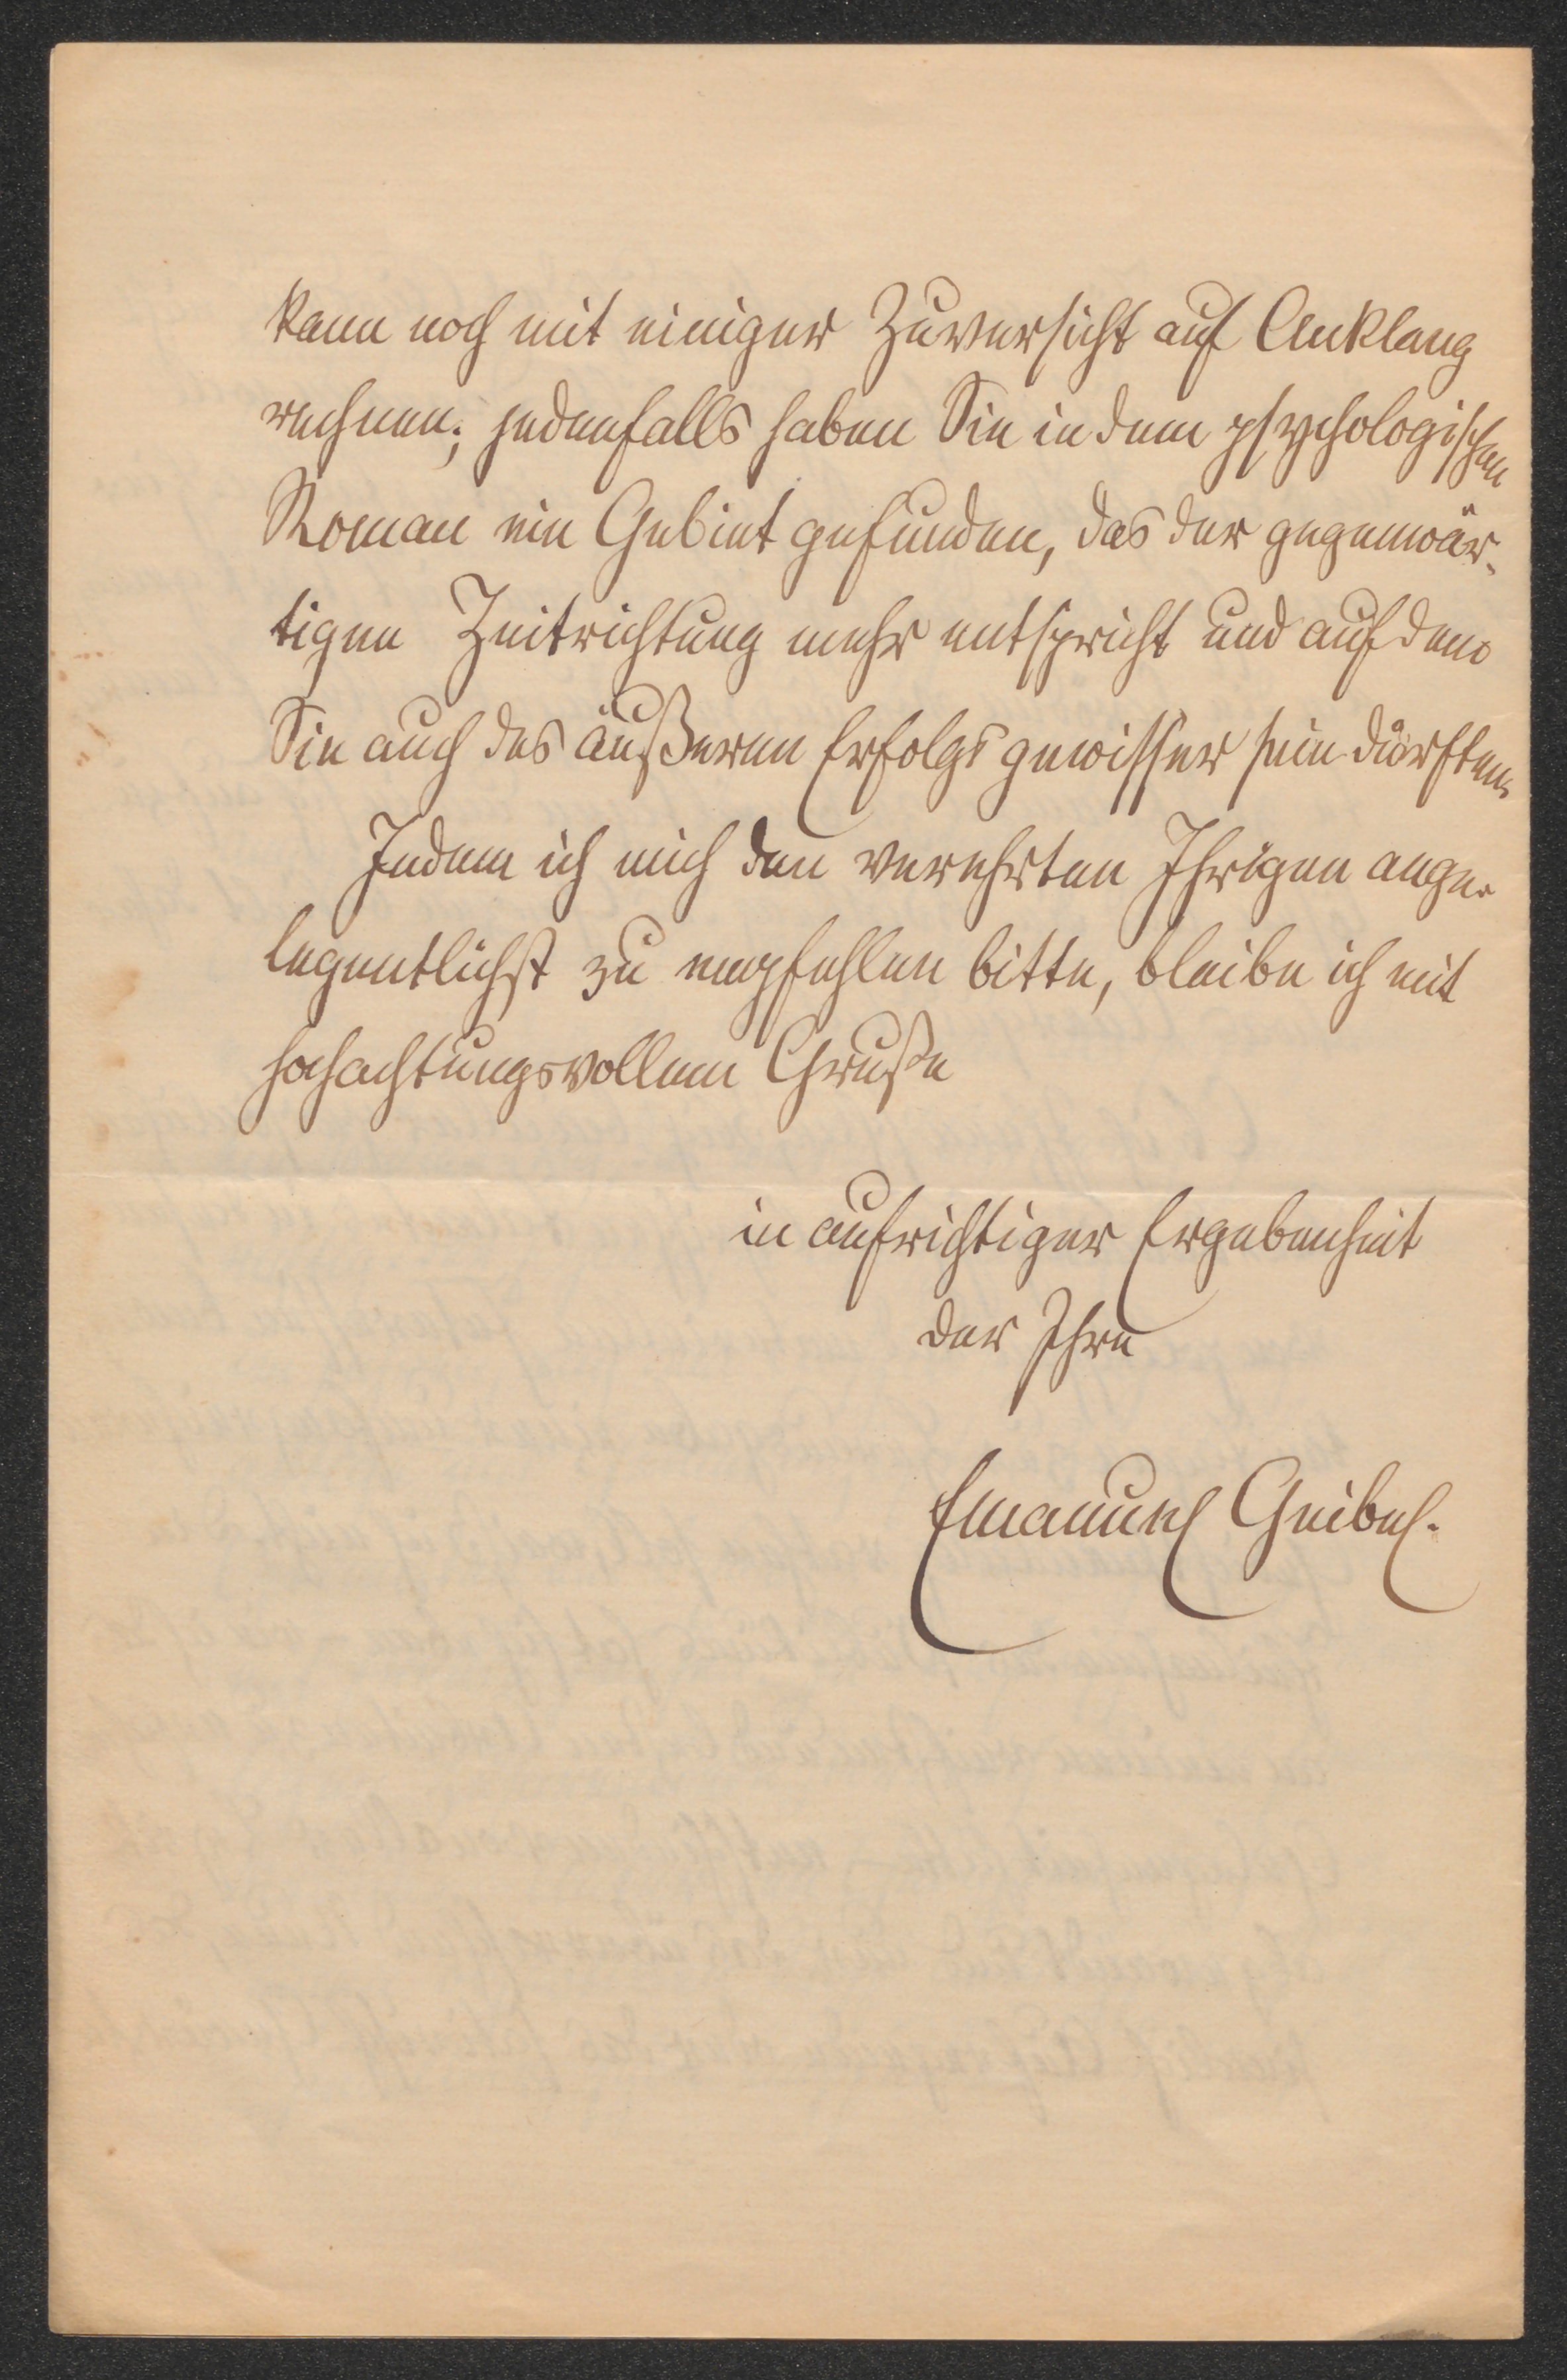 kann noch mit einiger Zuversicht auf Anklang
rechnen; jedenfalls haben Sie in dem psychologischen
Roman ein Gebiet gefunden, das der gegenwär-
tigen Zeitrichtung mehr entspricht und auf dem
Sie auch des äußeren Erfolgs gewisser sein dürften.
Indem ich mich den verehrten Ihrigen ange-
legentlichst zu empfehlen bitte, bleibe ich mit
hochachtungsvollem Gruße
in aufrichtiger Ergebenheit
der Ihre
Emanuel Geibel.